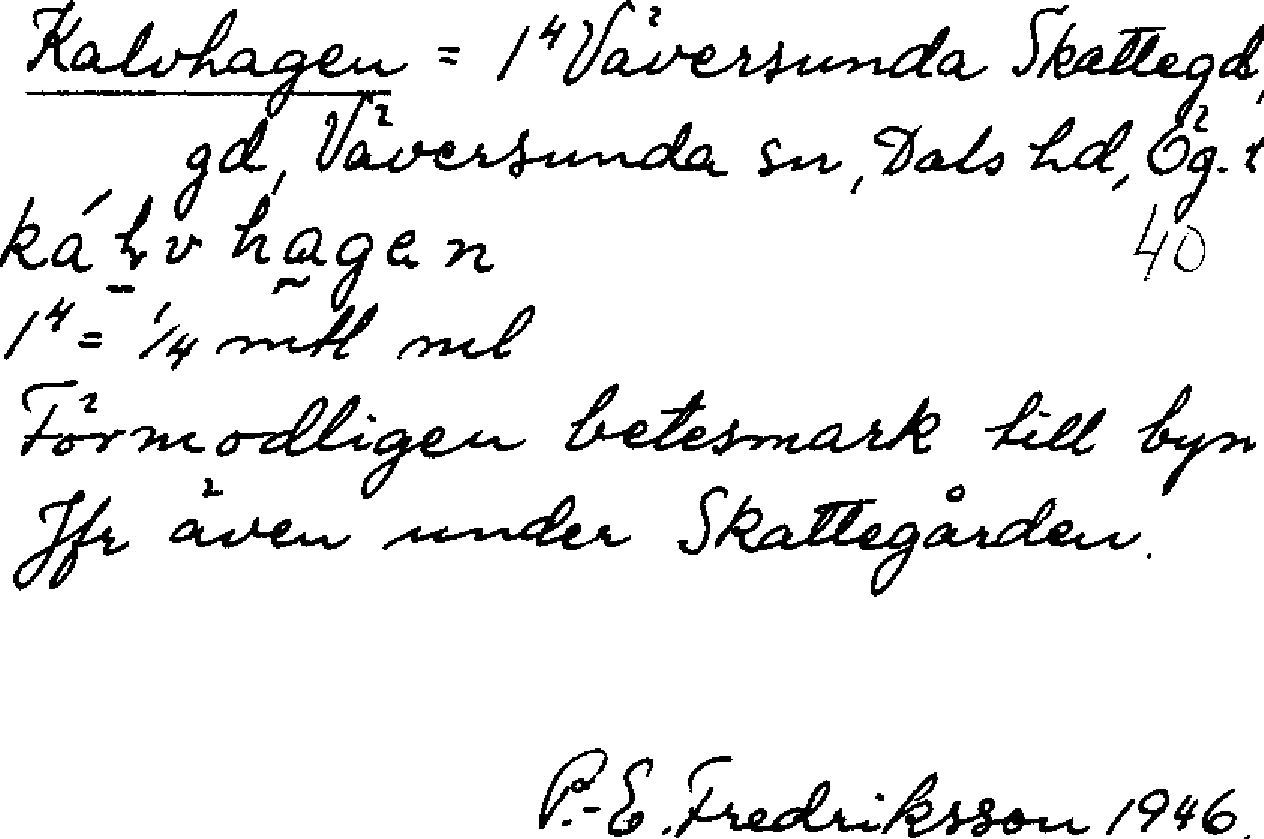 Kalvhagen = 1⁴ Väversunda Skattegd,
gd, Väversunda sn, Dals hd, Ög. t
kálvhagen 40
1⁴ = 1/4 mtl ml
Förmodligen betesmark till byn
Jfr även under Skattegården.
P.-E. Fredriksson 1946.